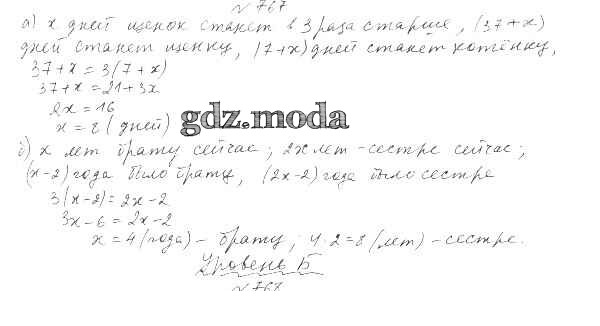 № 767
а) х дней щенок станет в 3 раза старше, (37+х)
дней станет щенку, (7+х) дней станет котёнку,
37+х = 3(7+х)
37+х = 21+3х
2х = 16
х = 8 (дней)
gdz.moda
б) х лет брату сейчас; 2х лет - сестре сейчас;
(х-2) года было брату, (2х-2) года было сестре
3(х-2) = 2х-2
3х-6 = 2х-2
х = 4 (года) - брату; 4·2=8 (лет) - сестре.
Уровень Б
№ 768